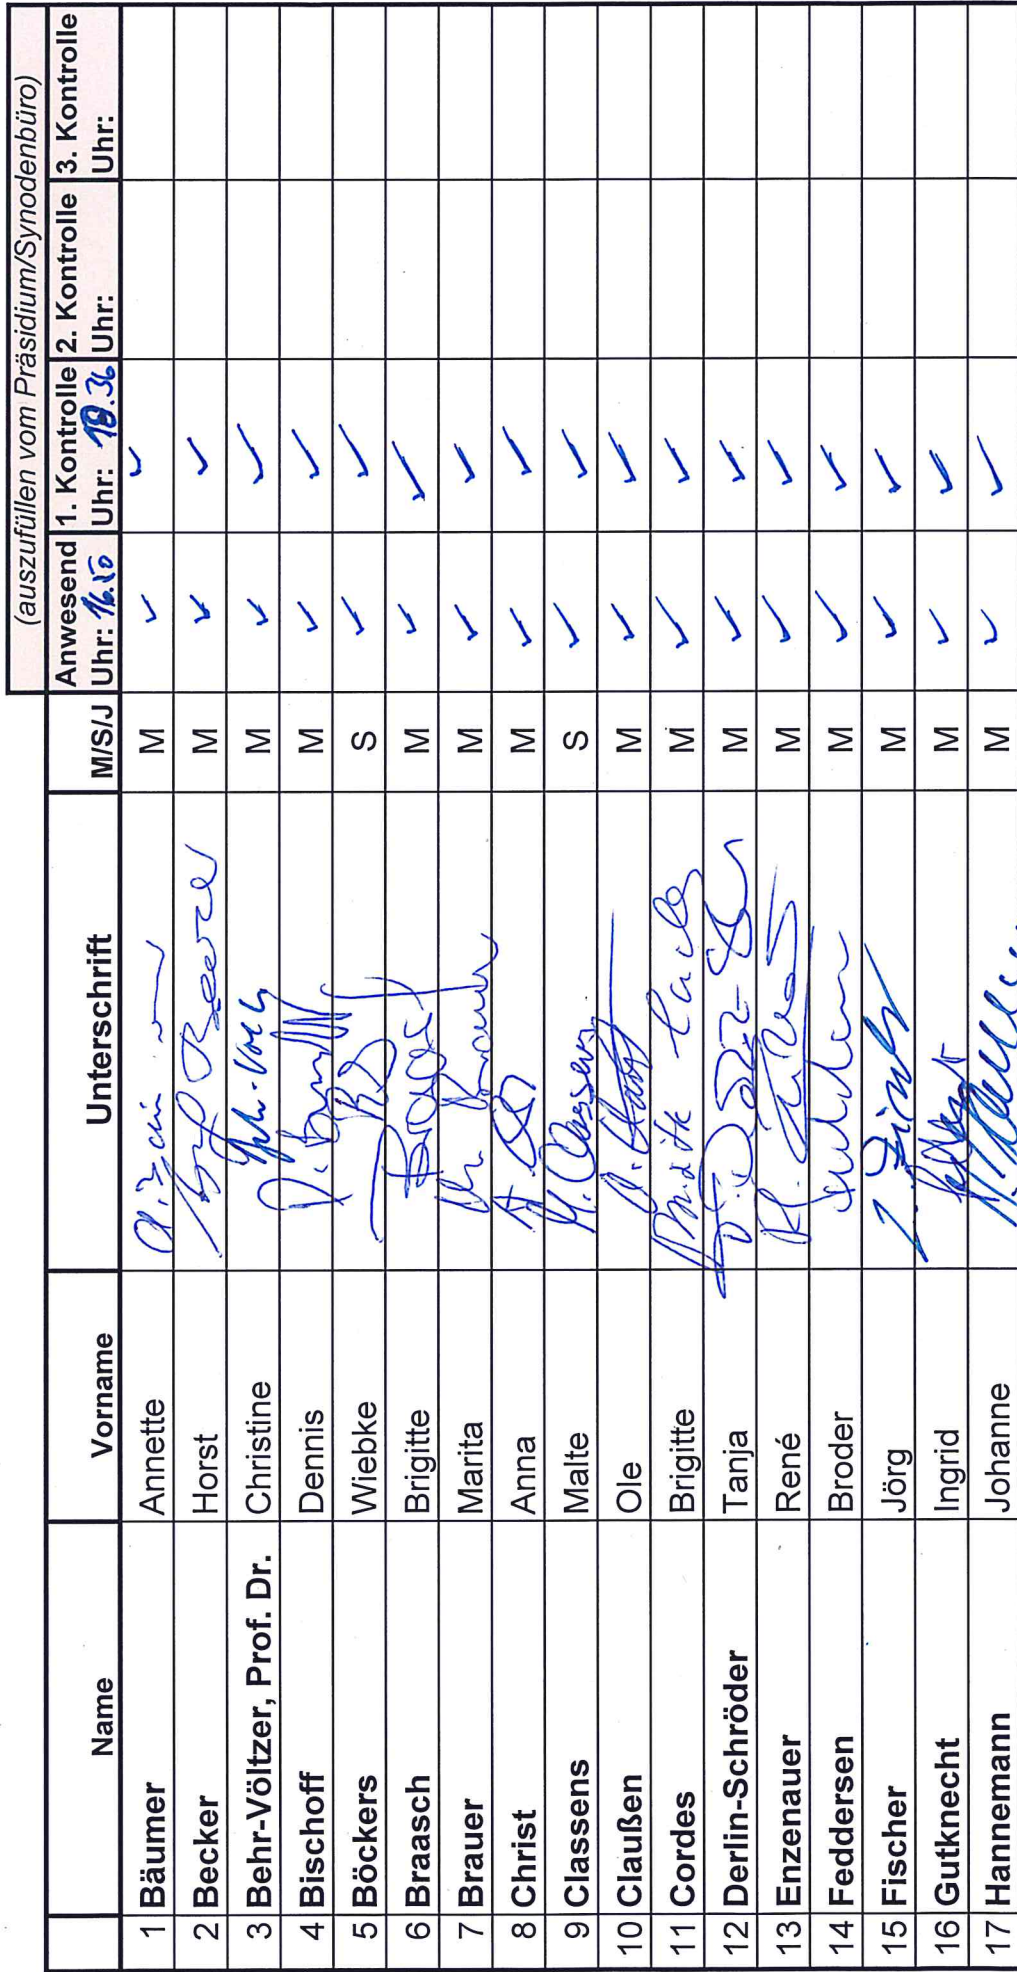 (auszufüllen vom Präsidium/Synodenbüro)
Name Vorname Unterschrift M/S/J Anwesend 1. Kontrolle 2. Kontrolle 3. Kontrolle
Uhr: 16.50 Uhr: 18.36 Uhr: Uhr:
1 Bäumer Annette M ✓ ✓
2 Becker Horst M ✓ ✓
3 Behr-Völtzer, Prof. Dr. Christine M ✓ ✓
4 Bischoff Dennis M ✓ ✓
5 Böckers Wiebke S ✓ ✓
6 Braasch Brigitte M ✓ ✓
7 Brauer Marita M ✓ ✓
8 Christ Anna M ✓ ✓
9 Classens Malte M. Classens S ✓ ✓
10 Claußen Ole M ✓ ✓
11 Cordes Brigitte M ✓ ✓
12 Derlin-Schröder Tanja M ✓ ✓
13 Enzenauer René M ✓ ✓
14 Feddersen Broder M ✓ ✓
15 Fischer Jörg M ✓ ✓
16 Gutknecht Ingrid M ✓ ✓
17 Hannemann Johanne M ✓ ✓